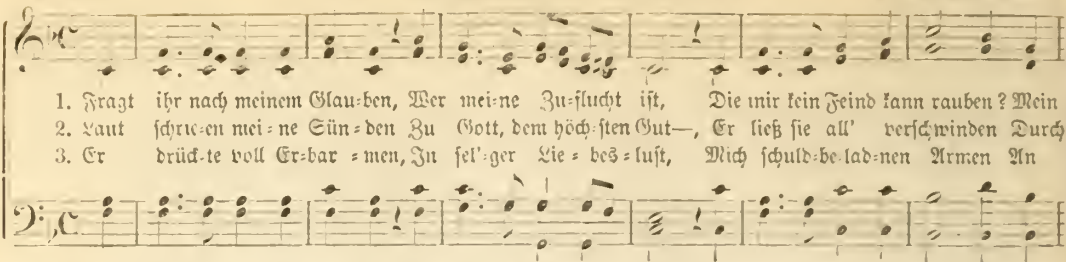 1. Fragt ihr nach meinem Glau-ben, Wer mei-ne Zu-flucht ist, Die mir kein Feind kann rauben? Mein
2. Laut schrie-en mei-ne Sün-den Zu Gott, dem höch-sten Gut—, Er ließ sie all' verschwinden Durch
3. Er drück-te voll Er-bar-men, In sel'-ger Lie-bes-lust, Mich schuld-be-lad-nen Armen An